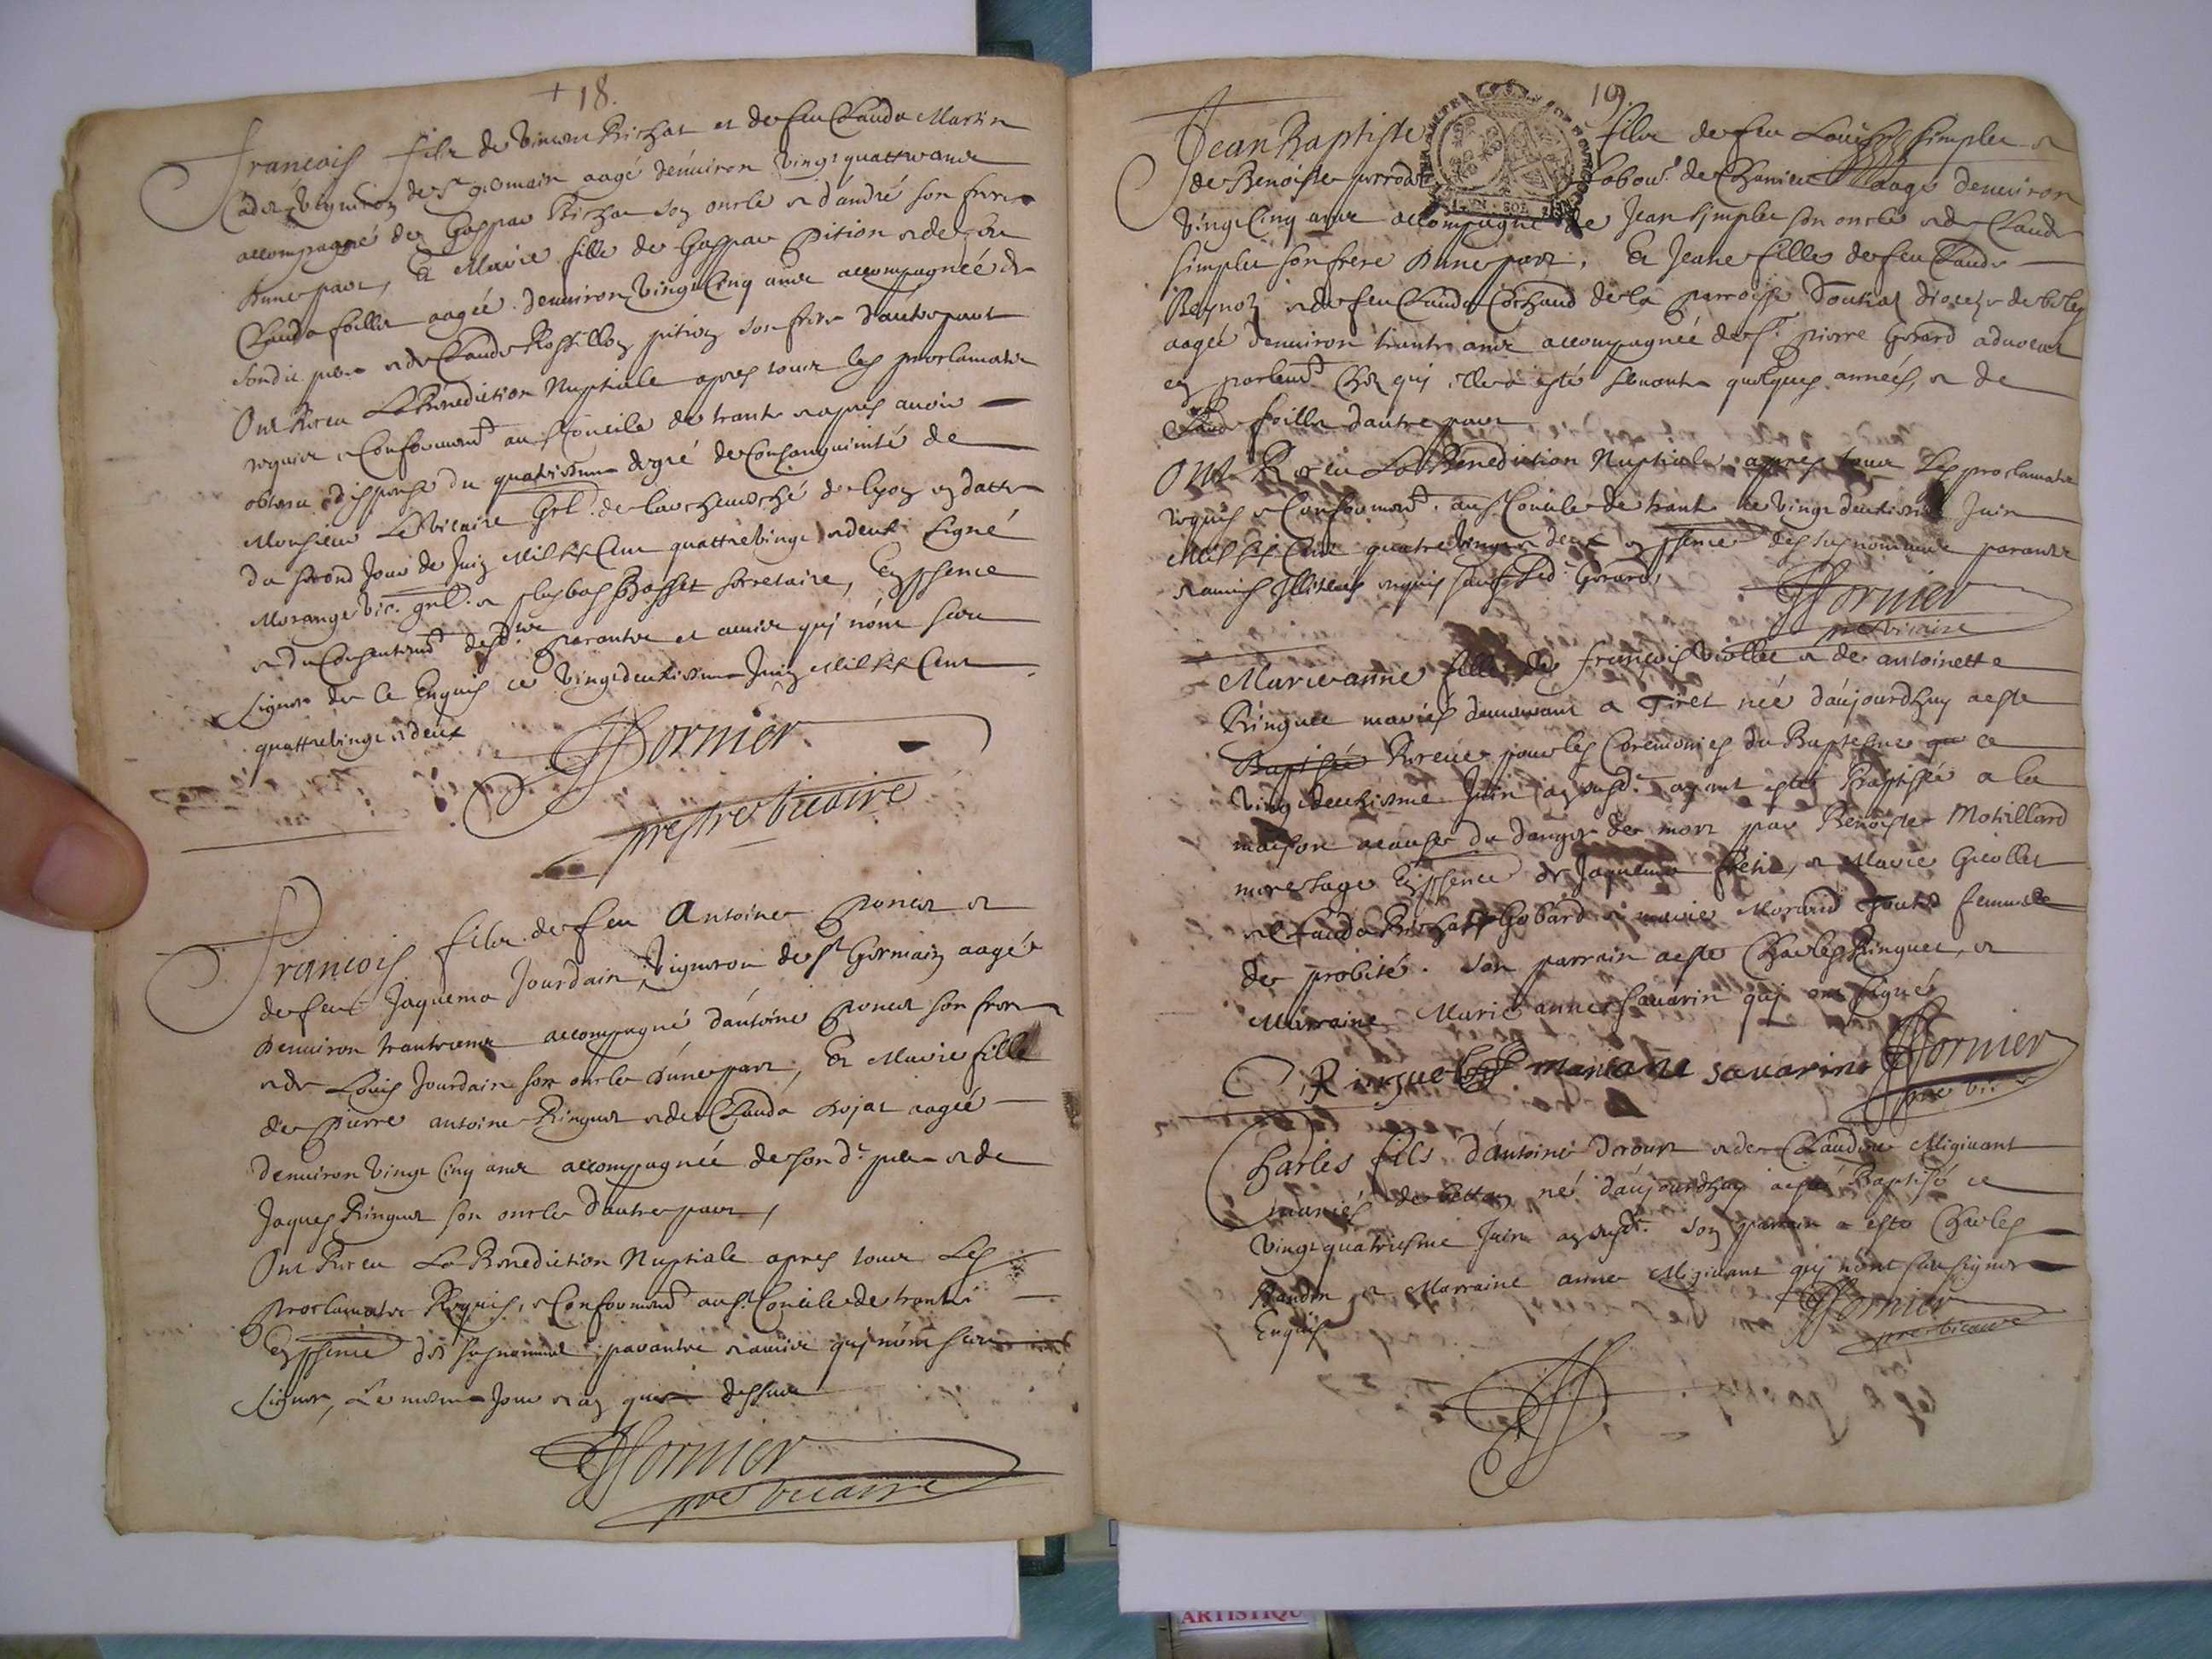 + 18.
Francois fils de Vincent Richar et de feu Clauda Martin
vigneron de St germain aagé denuiron vingt quattre ans
accompagné de Gaspar Richar son oncle et d'andré son frere
d'une part, Et Marie fille de Gaspar Pition et de feu
Clauda foillet aagée denuiron vingt Cinq ans accompagnée de
sondit pere et de Claude Rossillon pition son frere d'autre part
Ont Receu La Benediction Nuptiale apres tous les proclamats
requis et Conformemt au St Concile de trante et apres auoir
obtenu dispense du quatriesme degré de Consanguinité de
Monsieur Le Vicaire Grl. de larcheuesché de Lyon en datte
du second Jour de Juin Mil six Cent quattre vingt et deux Signé
Morange Vic. grl. et plus bas Basset secretaire, En psence
et du Consentemt desd. parants et amis qui nont sceu
signer de ce Enquis ce vingt deuxiesme Juin Mil six Cent
quattre vingt et deux
Fornier
prestre vicaire
Francois fils de feu Antoine Poncet et
de feue Jaquema Jourdain, Vigneron de St Germain aagé
denuiron trante ans accompagné d'antoine Poncet son frere
et de Louis Jourdain son oncle d'une part, Et Marie fille
de Pierre antoine Ringuet et de Clauda Bojat aagée
denuiron vingt Cinq ans accompagnée de sond. pere et de
Jaques Ringuet son oncle d'autre part,
Ont Receu La Benediction Nuptiale apres tous Les
Proclamats Requis, et Conformemt au St Concile de trante
En psence des susnommes parants et amis qui nont sceu
signer, Le mesme Jour et an que dessus
Fornier
pre vicaire
19
Jean Baptiste fils de feu Louis simplet et
de Benoiste labour de aagé denuiron
vingt Cinq ans accompagné de Jean simplet son oncle et de Claude
simplet son frere d'une part, Et Jeane fille de feu Claude
Reynoz et de feue Clauda Cochaud de la parroisse d'outriaz diocese de
aagée denuiron trante ans accompagnée de Sr. pierre Gerard aduocat
en parlemt. Chez qui elle a esté seruante quelques années, et de
Claude foillet d'autre part
Ont Receu La Benediction Nuptiale apres tous Les proclamats
requis et Conformemt. au St Concile de trante le vingt deuxiesme Juin
Mil six Cent quatre vingt et deux en psence des susnommes parants
et amis Illiterés enquis sauf Led. Gerard,
Fornier
pre vicaire
Marie anne fille de françois Viollet et de antoinette
Ringuet mariés demeurant a Tiret née daujourdhuy a este
Baptisée Receue pour les Ceremonies du Baptesme ce
vingt deuxiesme Juin an susd. ayant esté Baptisée a la
maison a cause du danger de mort par Benoiste Motillard
mere sage En psence de Jaquema et Marie Griollet
et Clauda Richar Gobard et marie Morand toutes femmes
de probité. Son parrain a este Charles Ringuet, et
Marraine Marie anne Sauarin qui ont signé
C, Ringuet mariane sauarin Fornier
pre vic
Charles fils d'Antoine Derout et de Claudine Migiuant
mariés de Bettan né daujourdhuy a esté Baptisé ce
vingt quatriesme Juin an susd. Son parrain a este Charles
Baudin et Marraine anne Migiuant qui nont sceu signer
Enquis
Fornier
pre vicaire
ARTISTIQU